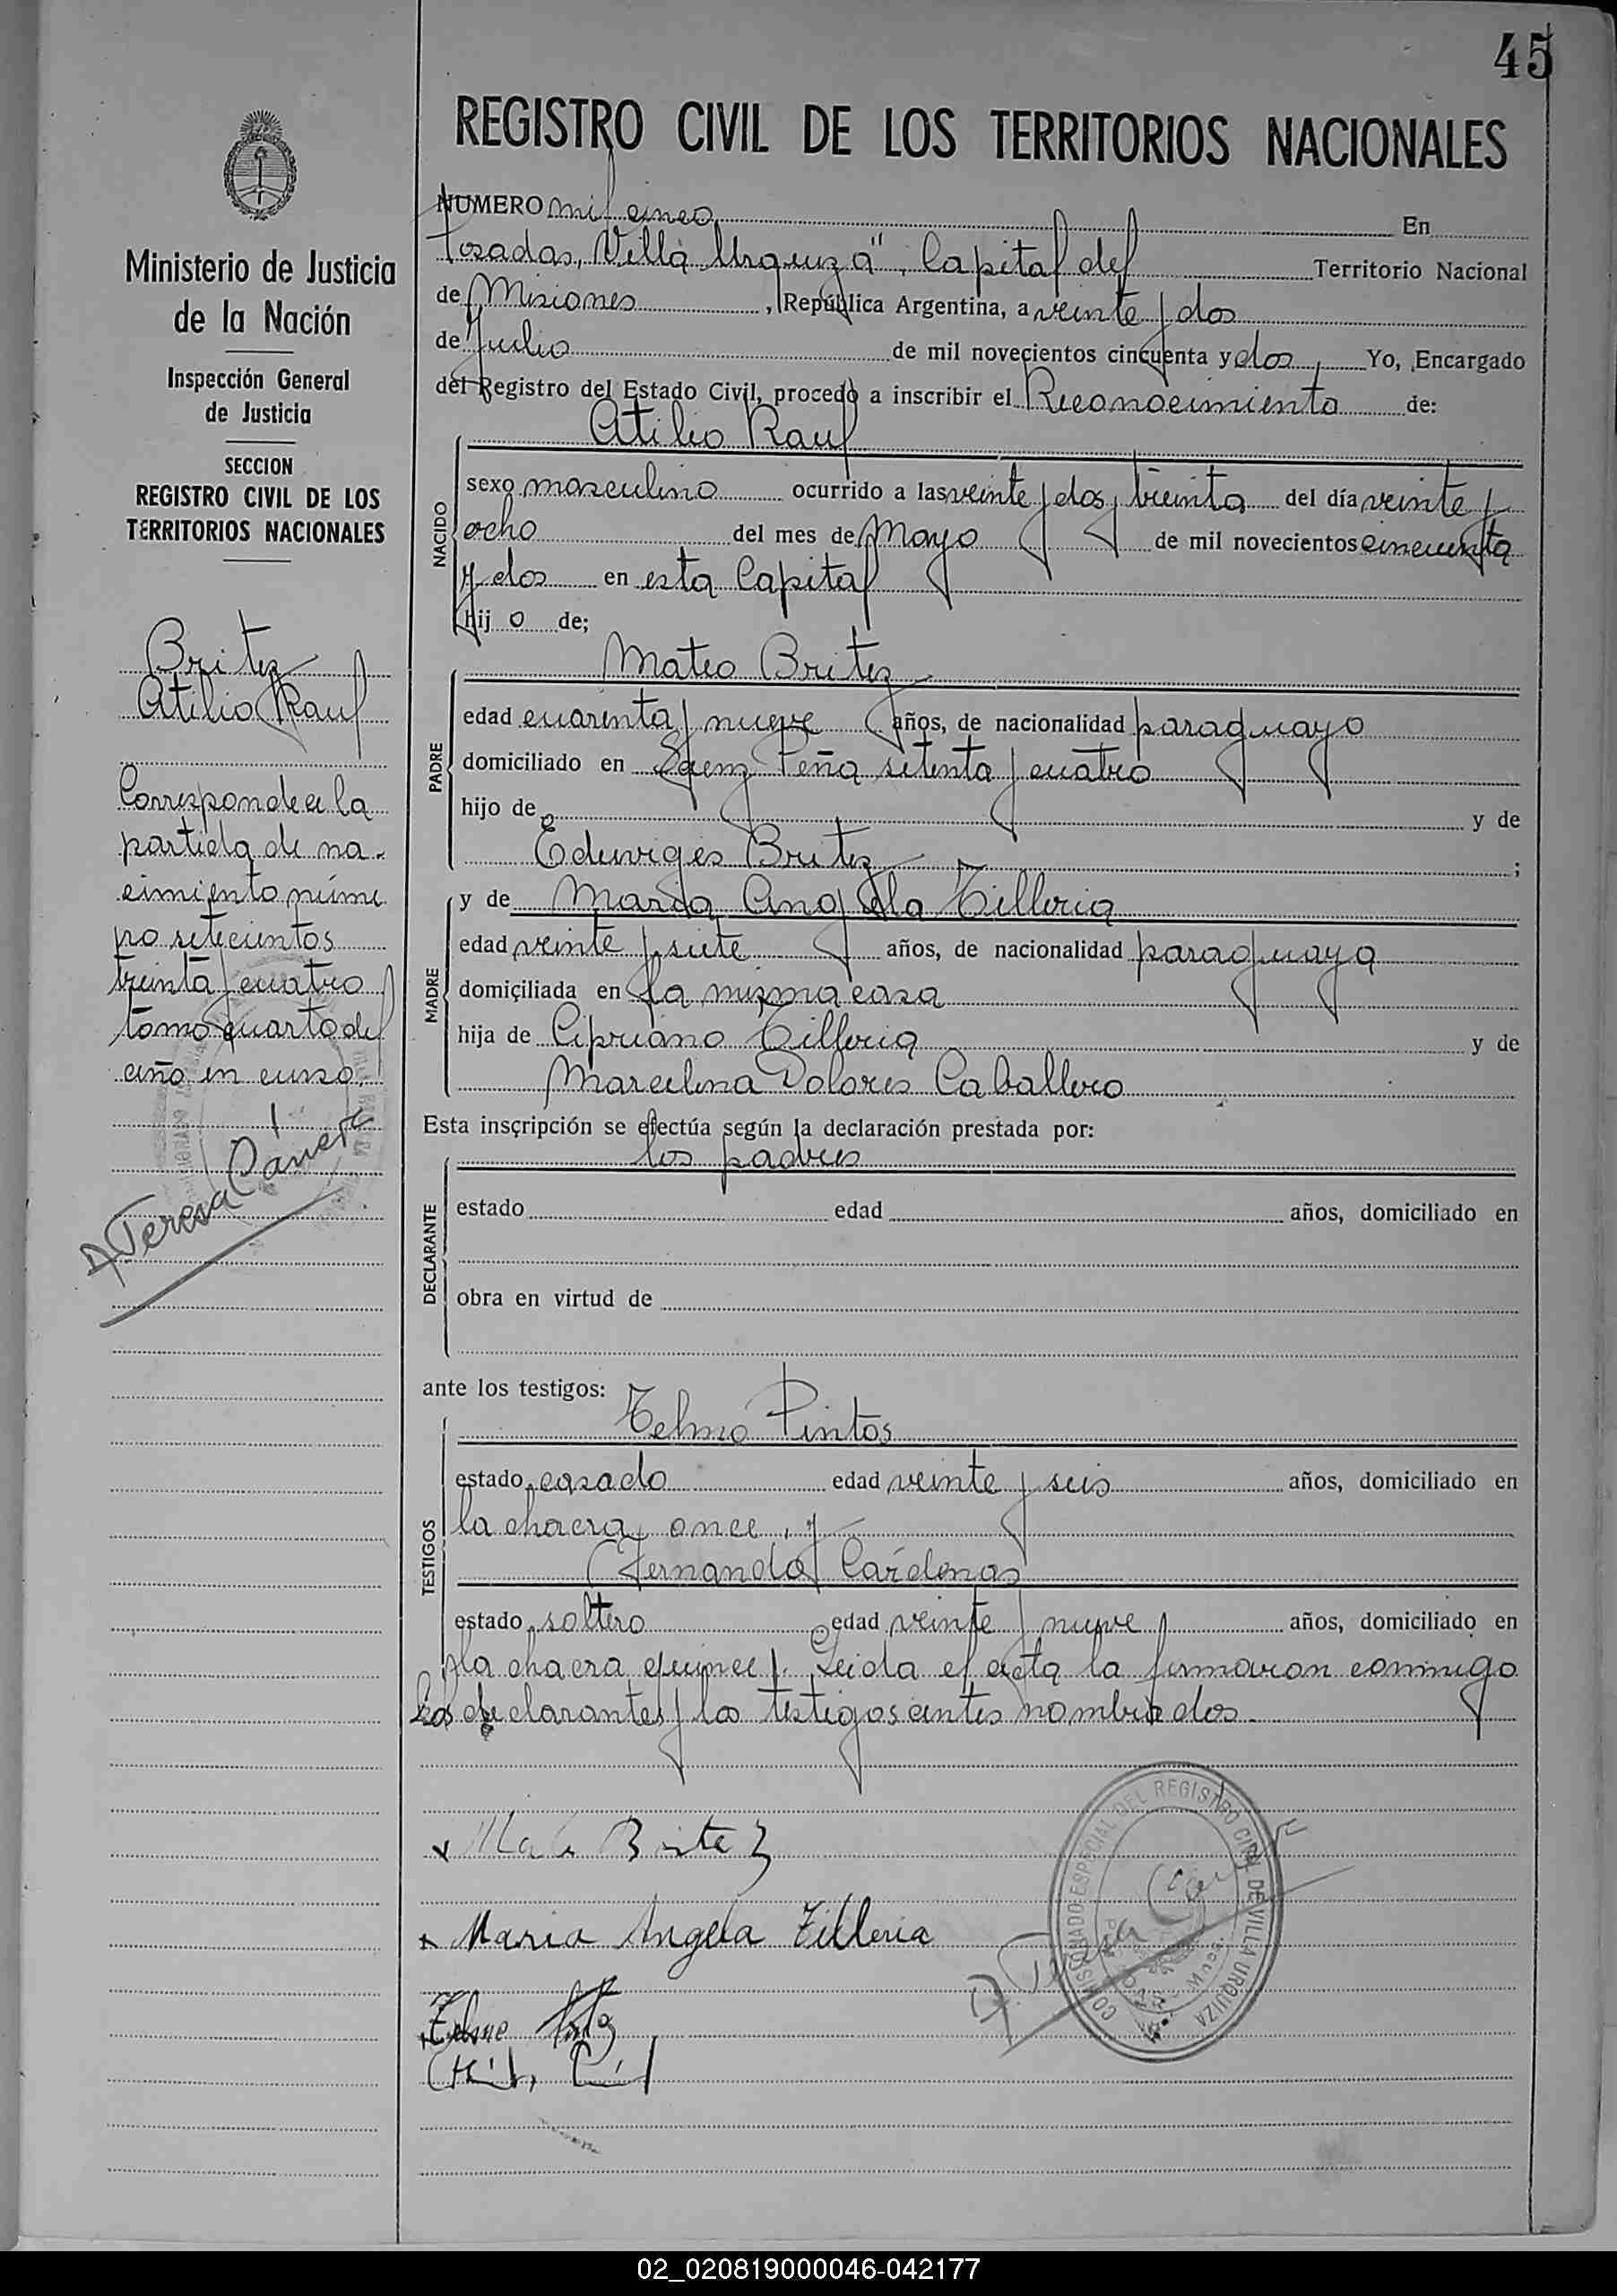 45
REGISTRO CIVIL DE LOS TERRITORIOS NACIONALES
Ministerio de Justicia
de la Nación
Inspección General
de Justicia
SECCION
REGISTRO CIVIL DE LOS
TERRITORIOS NACIONALES
Britez
Atilio Raul
Corresponde a la
partida de na-
cimiento núme
ro setecientos
treinta y cuatro
tomo cuarto del
año en curso.
NUMERO mil cinco En
Posadas, "Villa Urquiza", Capital del Territorio Nacional
de Misiones, República Argentina, a veinte y dos
de Julio de mil novecientos cincuenta y dos, Yo, Encargado
del Registro del Estado Civil, procedo a inscribir el Reconocimiento de:
Atilio Raul
NACIDO
sexo masculino ocurrido a las veinte y dos y treinta del día veinte y
ocho del mes de Mayo de mil novecientos cincuenta
y dos en esta Capital
hijo de;
Mateo Britez
PADRE
edad cuarenta y nueve años, de nacionalidad paraguayo
domiciliado en Saenz Peña setenta y cuatro
hijo de y de
Eduviges Britez ;
y de Maria Angela Tilleria
MADRE
edad veinte y siete años, de nacionalidad paraguaya
domiciliada en la misma casa
hija de Cipriano Tilleria y de
Marcelina Dolores Caballero
Esta inscripción se efectúa según la declaración prestada por:
los padres
DECLARANTE
estado edad años, domiciliado en
obra en virtud de
ante los testigos:
Telmo Pintos
TESTIGOS
estado casado edad veinte y seis años, domiciliado en
la chacra once, y
Fernando Cárdenas
estado soltero edad veinte y nueve años, domiciliado en
la chacra quince. Leida el acta la firmaron conmigo
los declarantes y los testigos antes nombrados.
Britez
Maria Angela Tilleria
Telmo
COMISIONADO ESPECIAL DEL REGISTRO CIVIL DE VILLA URQUIZA
02_020819000046-042177